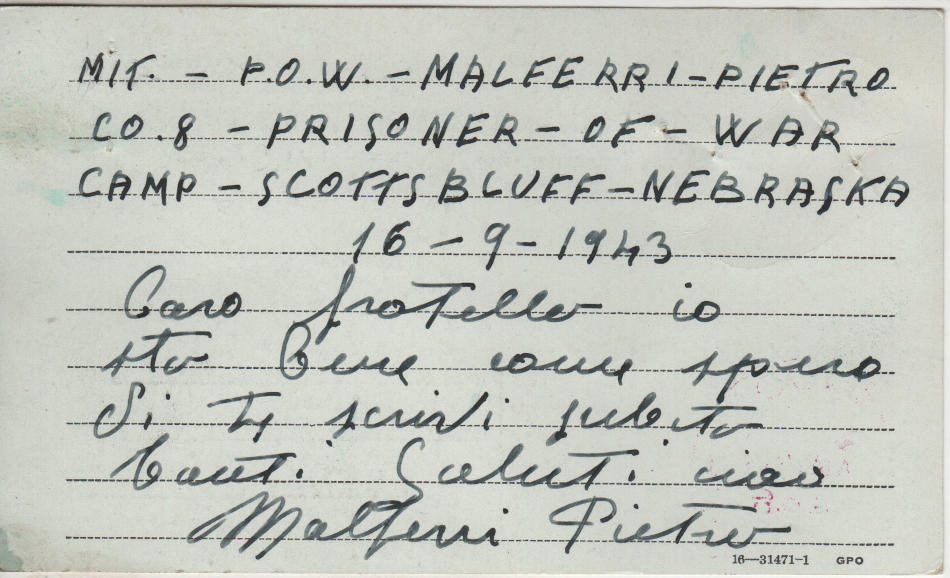 MIT. - P.O.W. - MALFERRI - PIETRO
CO. 8 - PRISONER - OF - WAR
CAMP - SCOTTSBLUFF - NEBRASKA
16 - 9 - 1943
Caro fratello io
sto Bene come spero
Di Te scrivi subito
Tanti Saluti ciao
Malferri Pietro
16—31471-1 GPO